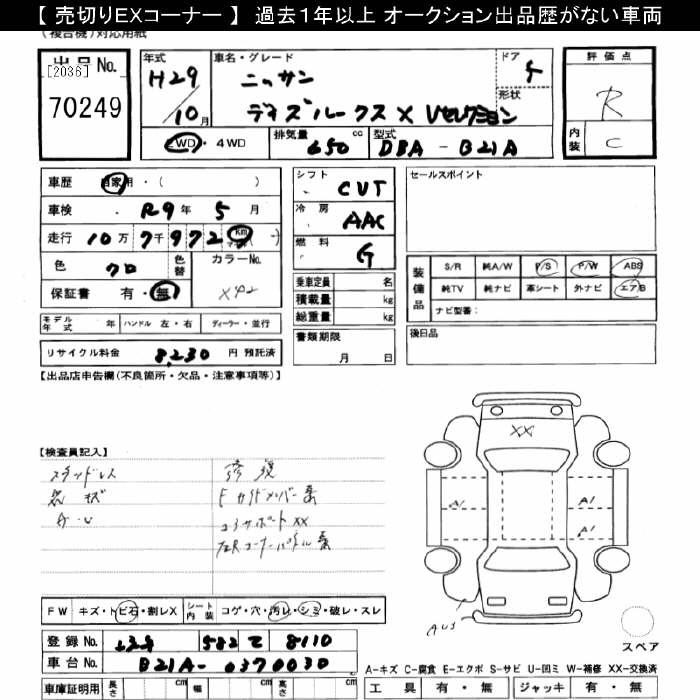 【 売切りEXコーナー 】 過去1年以上 オークション出品歴がない車両
(複合機)対応用紙
出品No.
[2036]
70249
年式
H29
/10月
車名・グレード
ニッサン
デイズルークス X Vセレクション
ドア
形状
評価点
R
内装
C
2WD・4WD
排気量
650 cc
型式
DBA - B21A
車歴 自家用・( )
車検 R9年 5月
走行 10万7千972 km マイル( )
色 クロ
色替
カラーNo.
X42
保証書 有・無
シフト
CVT
冷房
AAC
燃料
G
乗車定員 名
積載量 kg
総重量 kg
書類期限
月 日
セールスポイント
装備品
S/R 純A/W P/S P/W ABS
純TV 純ナビ 革シート 外ナビ エアB
ナビ型番:
後日品
モデル年式 年 ハンドル 左・右 ディーラー・並行
リサイクル料金 8,230 円 預託済
【出品店申告欄(不良箇所・欠品・注意事項等)】
【検査員記入】
スタッドレス
修復
XX
A1
A1
A1
FW キズ・トビ石・割レX シート内装 コゲ・穴・汚レ・シミ・破レ・スレ
登録No. 582 て 8110
車台No. B21A-0370030
車庫証明用 長さ cm 幅 cm 高さ cm
スペア
A-キズ C-腐食 E-エクボ S-サビ U-凹ミ W-補修 XX-交換済
工具 有・無 ジャッキ 有・無